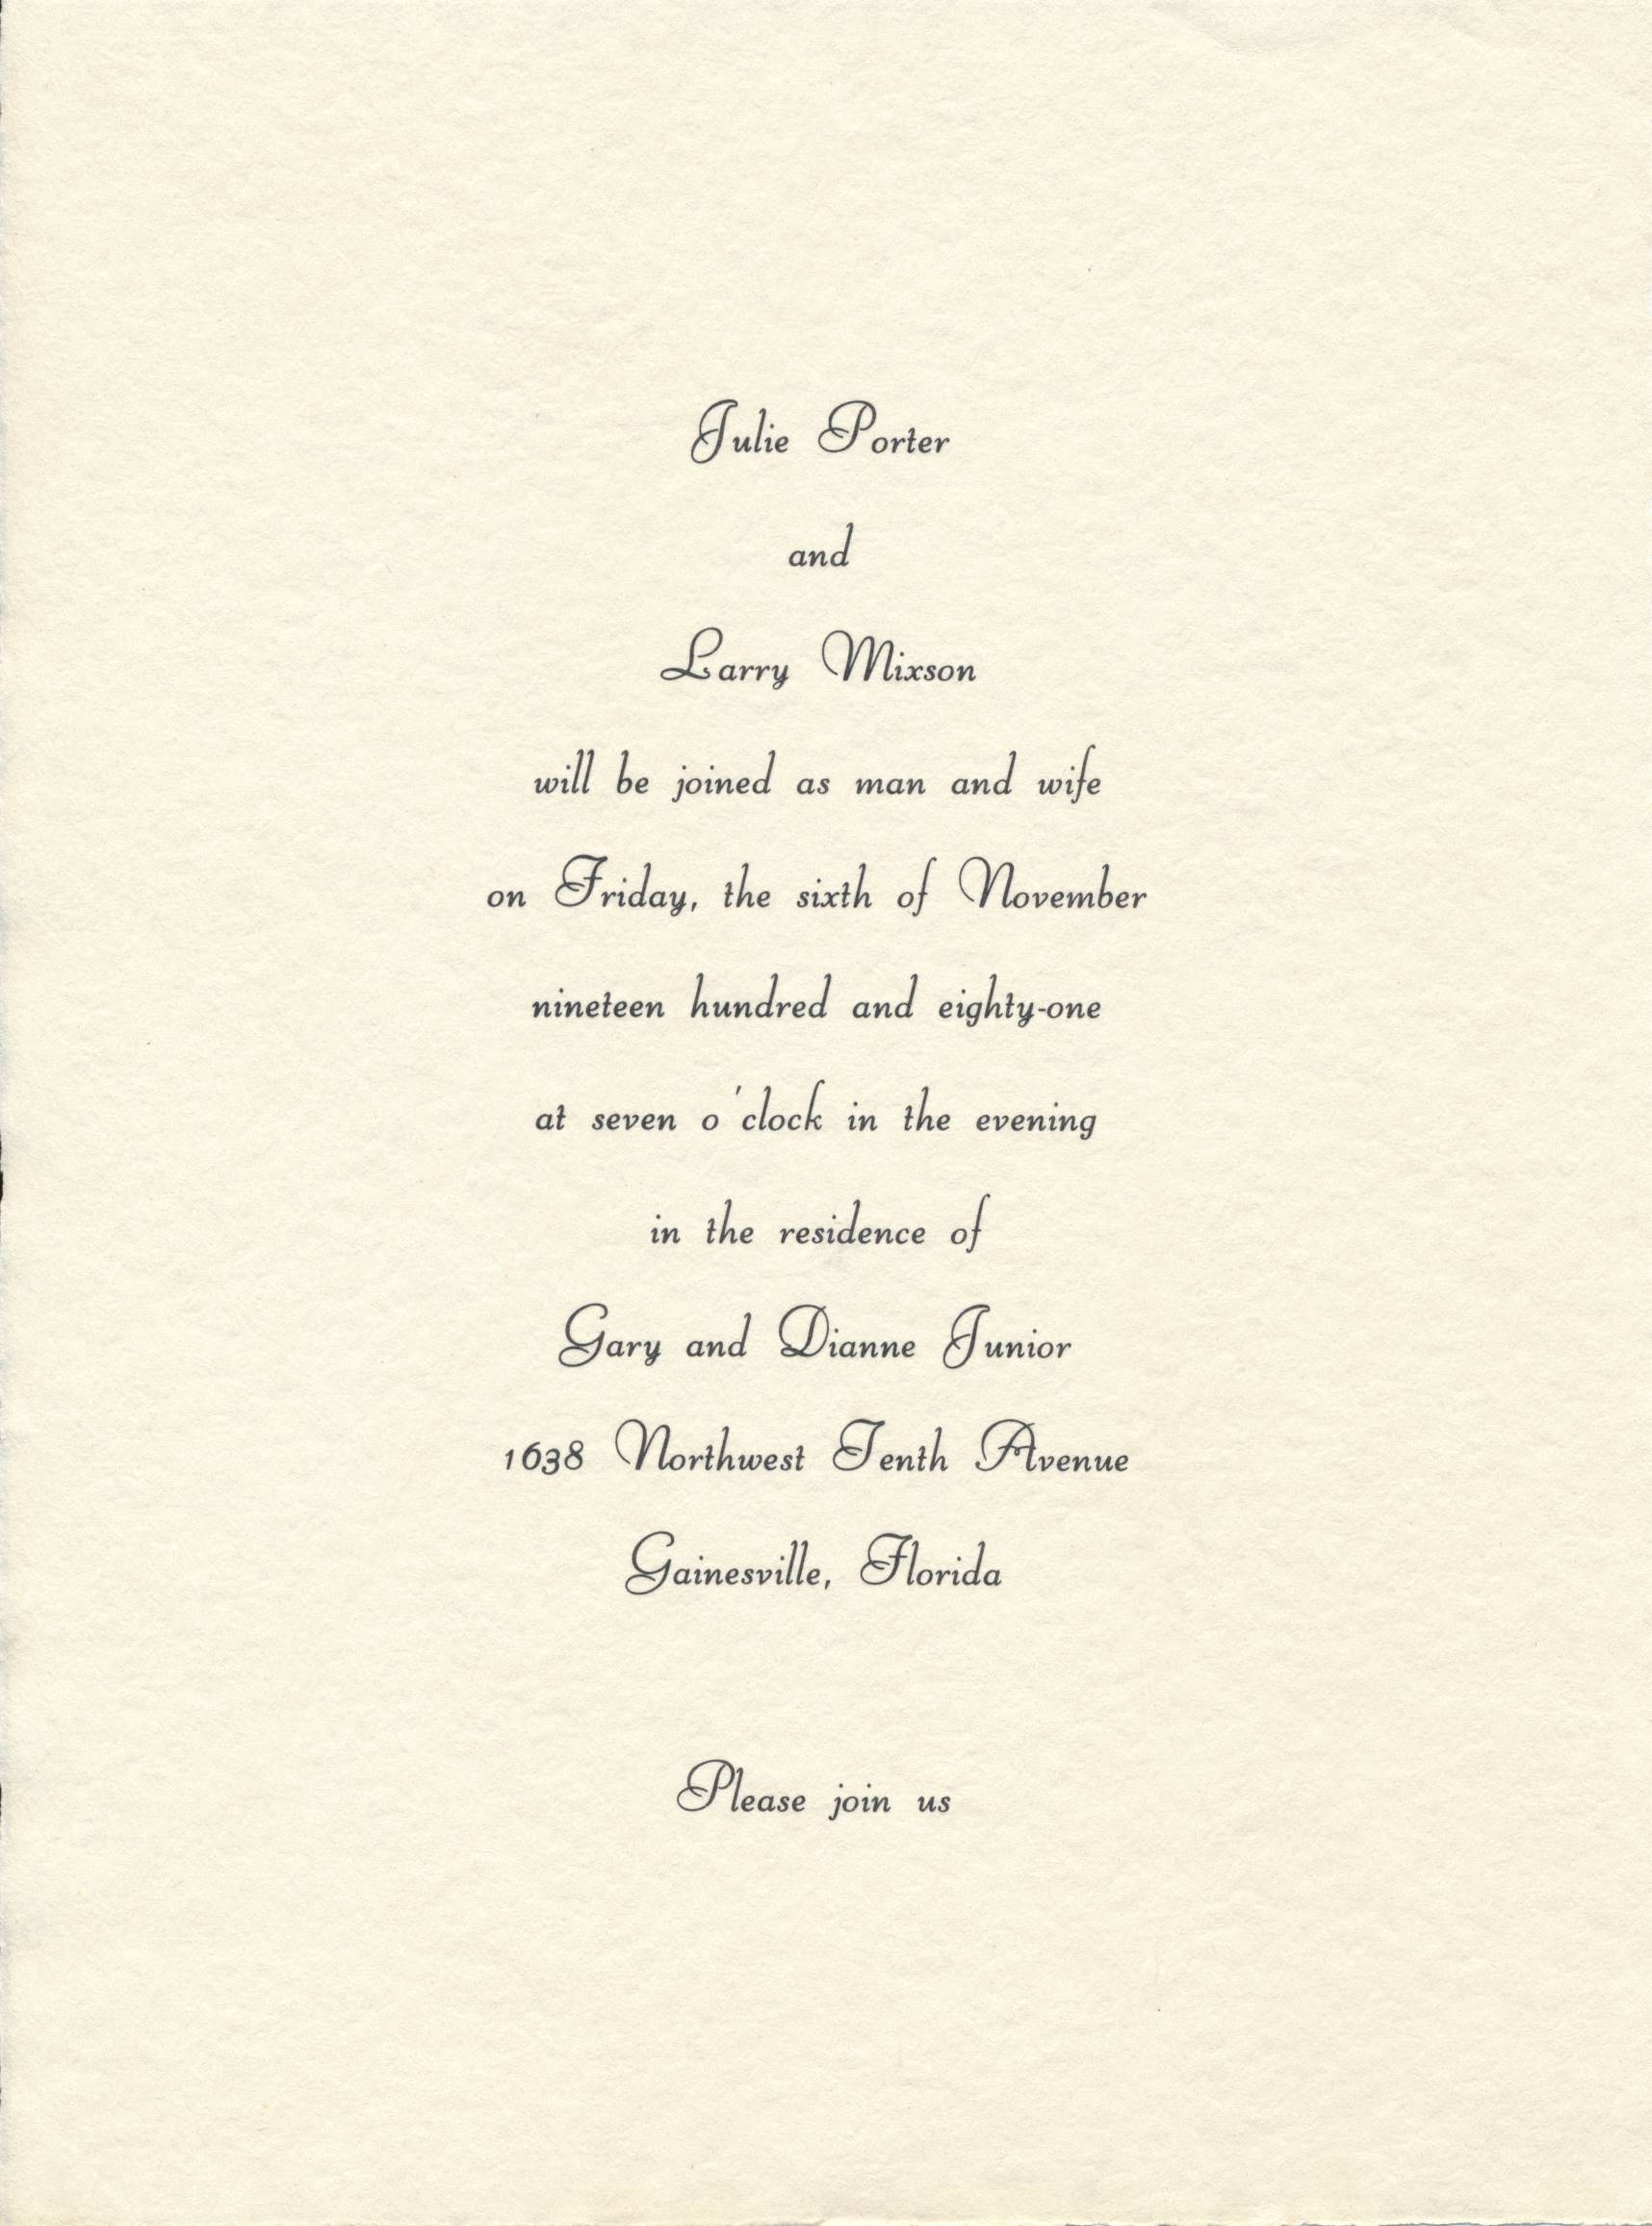 Julie Porter
and
Larry Mixson
will be joined as man and wife
on Friday, the sixth of November
nineteen hundred and eighty-one
at seven o'clock in the evening
in the residence of
Gary and Dianne Junior
1638 Northwest Tenth Avenue
Gainesville, Florida
Please join us